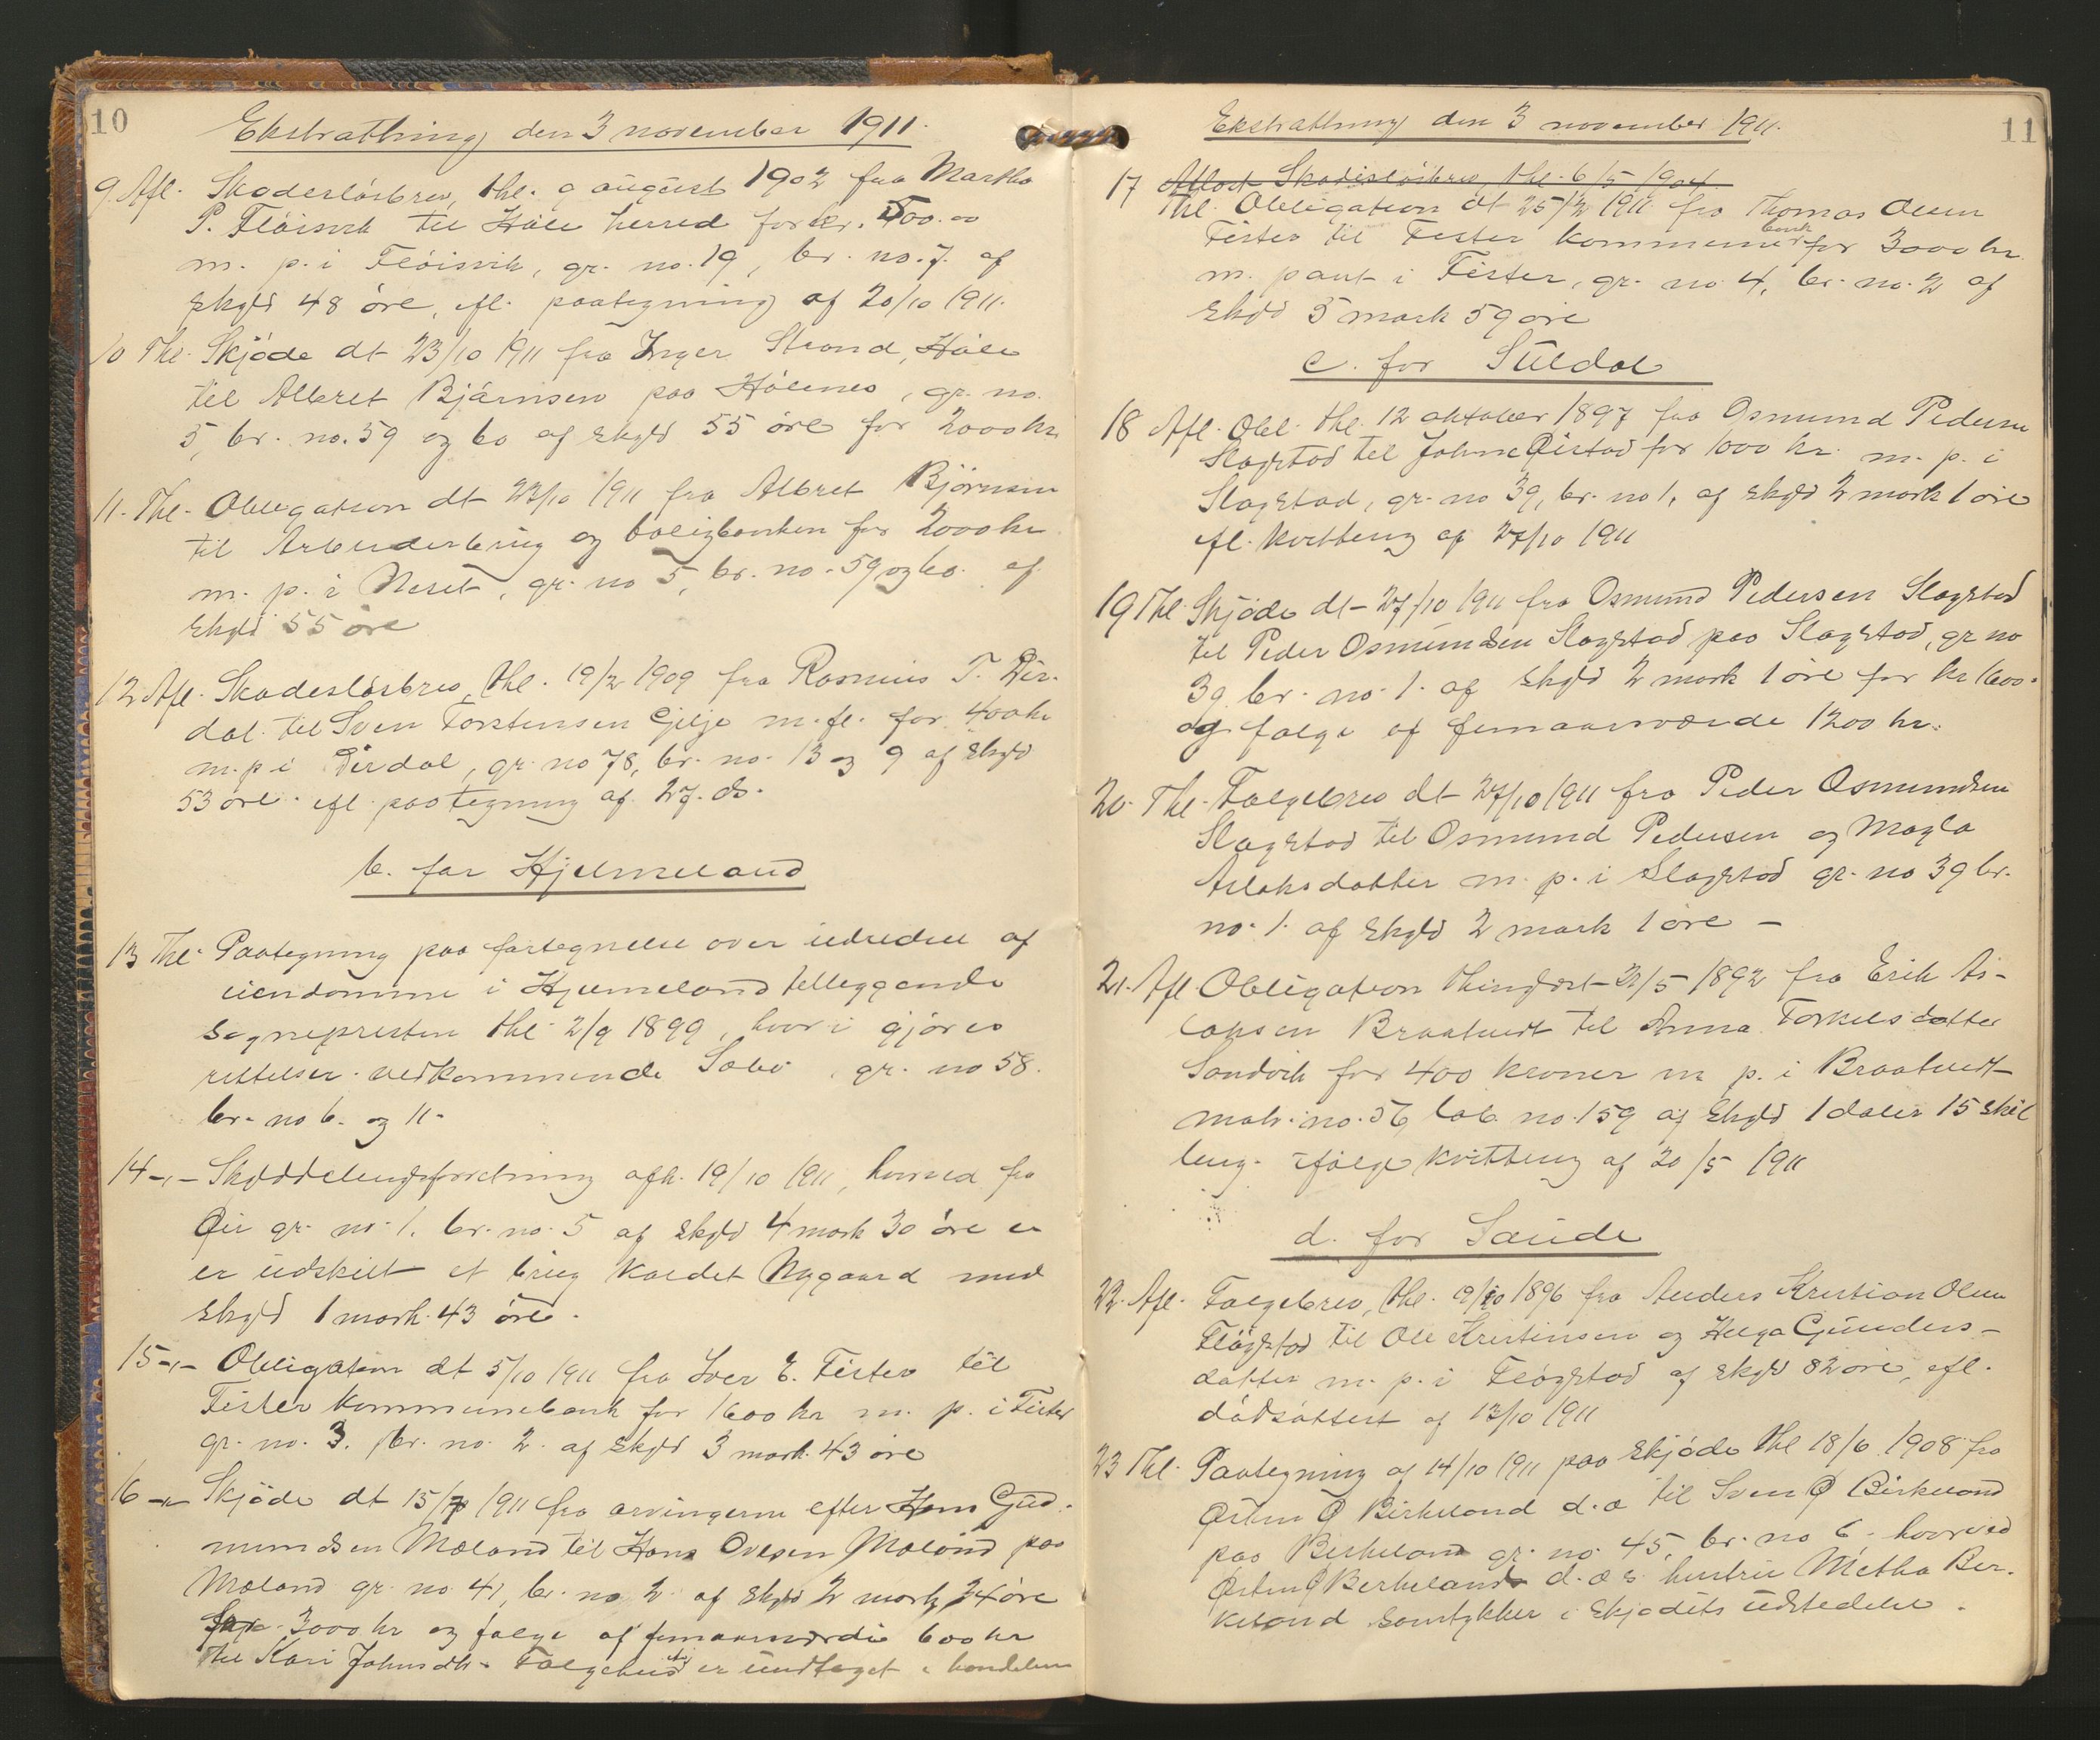 10
Ekstratthing den 3 november 1911.
9. Afl. Skadesløsbrev, thl. 9 august 1902 fra Martha
P. Fløisvik til Høle herred for kr.
m. p. i Fløisvik, gr. no. 19, br. no. 7. af
skyld 48 øre, ifl. paategning af 20/10 1911.
10 Thl. Skjøde dt 23/10 1911 fra Inger Strand, Høle
til Albret Bjørnsen paa Hølenes, gr. no.
5, br. no. 59 og 60 af skyld 55 øre for 2000 kr.
11. Thl. Obligation dt 23/10 1911 fra Albret Bjørnsen
til Arbeiderbrug og boligbanken for 2000 kr
m. p. i Neset, gr. no 5, br. no. 59 og 60. af
skyld 55 øre
12. Afl. Skadesløsbrev, thl. 19/2 1909 fra Rasmus T. Dir-
dal til Sven Torstensen Gilje m. fl. for 400 kr
m. p i Dirdal, gr. no 78, br. no. 13 og 9 af skyld
53 øre. ifl. paategning af 27. ds.
b. for Hjelmeland
13 Thl. Paategning paa fortegnelse over udredsel af
eiendomme i Hjelmeland tilleggende
sognepresten thl. 2/9 1899, hvori gjøres
rettelser vedkommende Sæbø, gr. no 58.
br. no 6. og 11.
14 -"- Skylddelingsforretning afh. 19/10 1911, hvorved fra
Øie gr. no. 1. br. no. 5 af skyld 4 mark 30 øre er
er udskilt et brug kaldet Nygaard med
skyld 1 mark 43 øre.
15 -"- Obligation dt 5/10 1911 fra Iver E. Fister til
Fister kommunebank for 1600 kr m. p. i Fister
gr. no. 3. br. no. 2. af skyld 3 mark 43 øre
16 -"- Skjøde dt 15/7 1911 fra arvingerne efter Hans Gud-
mundsen Mæland til Hans Ovesen Mæland paa
Mæland gr. no 41, br. no 2 af skyld 2 mark 34 øre
for 3000 kr og følge af femaarsværdi 600 kr
til Kari Johnsdtr. Følgehus er undtaget i handelen
11
Ekstratthing den 3 november 1911.
17 Aflæst Skadisløsbrev, thl. 6/5 1904.
Thl. Obligation dt 25/2 1911 fra Thomas Olsen
Fister til Fister kommunebank for 3000 kr
m. pant i Fister, gr. no 4, br. no. 2 af
skyld 5 mark 59 øre
c. for Suldal
18 Afl. Obl. thl. 12 oktober 1897 fra Osmund Pedersen
Slagstad til Johne Øistad for 1000 kr. m. p. i
Slagstad, gr. no 39, br. no 1, af skyld 2 mark 1 øre
ifl. kvittering af 27/10 1911
19 Thl. Skjøde dt 27/10 1911 fra Osmund Pedersen Slagstad
til Peder Osmundsen Slagstad paa Slagstad, gr no
39 br. no. 1. af skyld 2 mark 1 øre for kr 1600.
og følge af femaarsværdi 1200 kr.
20. Thl. Følgebrev dt 27/10 1911 fra Peder Osmundsen
Slagstad til Osmund Pedersen og Magla
Aslaksdatter m. p. i Slagstad gr. no 39 br.
no. 1. af skyld 2 mark 1 øre –
21. Afl. Obligation thinglæst 21/5 1892 fra Erik As-
laksen Braatveit til Anna Torkelsdatter
Sandvik for 400 kroner m p. i Braatveit
matr. no. 56 løb no. 159 af skyld 1 daler 15 skil
ling. ifølge kvittering af 20/5 1911
d. for Saude
22. Afl. Følgebrev, thl. 19/10 1896 fra Anders Kristian Olsen
Fløgstad til Ole Kristensen og Helga Gunders-
datter m. p. i Fløgstad af skyld 82 øre, ifl.
dødsattest af 13/10 1911
23 Thl. Paategning af 14/10 1911 paa skjøde thl 18/6 1908 fra
Østen Ø Birkeland d.æ til Sven Ø Birkeland
paa Birkeland gr. no. 45, br. no 6. hvorved
Østen Ø Birkeland d.æ s. hustru Metha Bir-
keland samtykker i skjødets udstedelse.